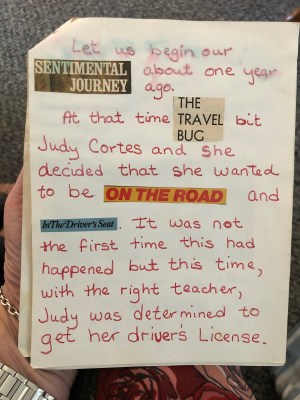 Let us begin our
SENTIMENTAL JOURNEY about one year ago.
At that time THE TRAVEL BUG bit
Judy Cortes and she
decided that she wanted
to be ON THE ROAD and
In The Driver's Seat. It was not
the first time this had
happened but this time,
with the right teacher,
Judy was determined to
get her drivers License.